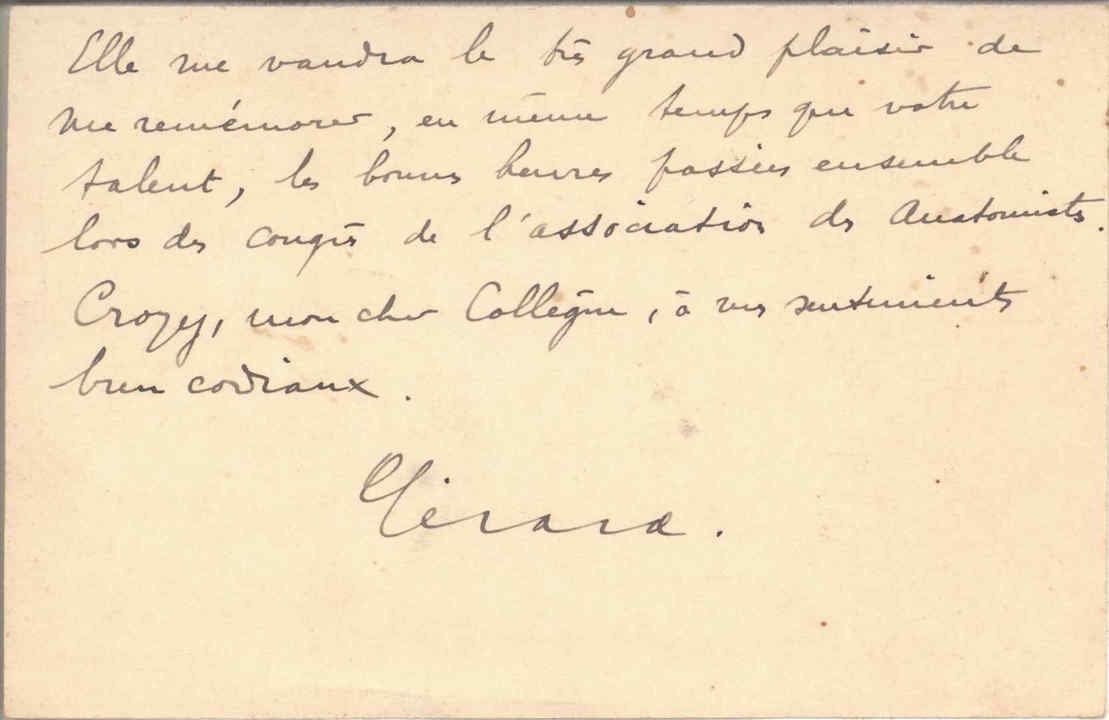 Elle me vaudra le très grand plaisir de
me remémorer, en même temps que votre
talent, les bonnes heures passées ensemble
lors des congrès de l'association des Anatomistes.
Croyez, mon cher Collègue, à mes sentiments
bien cordiaux.
Gérard.